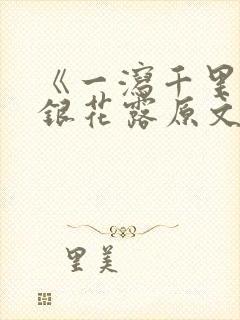 《一泻千里
银花露原文
里美